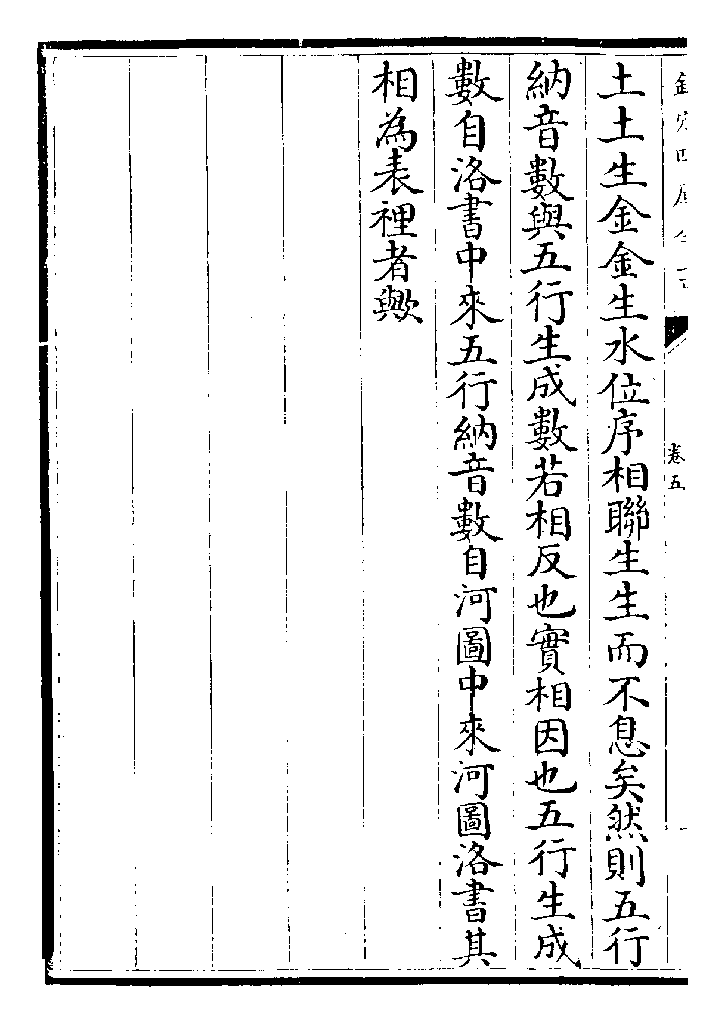 欽定四庫全書
卷五
土土生金金生水位序相聯生生而不息矣然則五行
納音數與五行生成數若相反也實相因也五行生成
數自洛書中來五行納音數自河圖中來河圖洛書其
相為表裡者歟